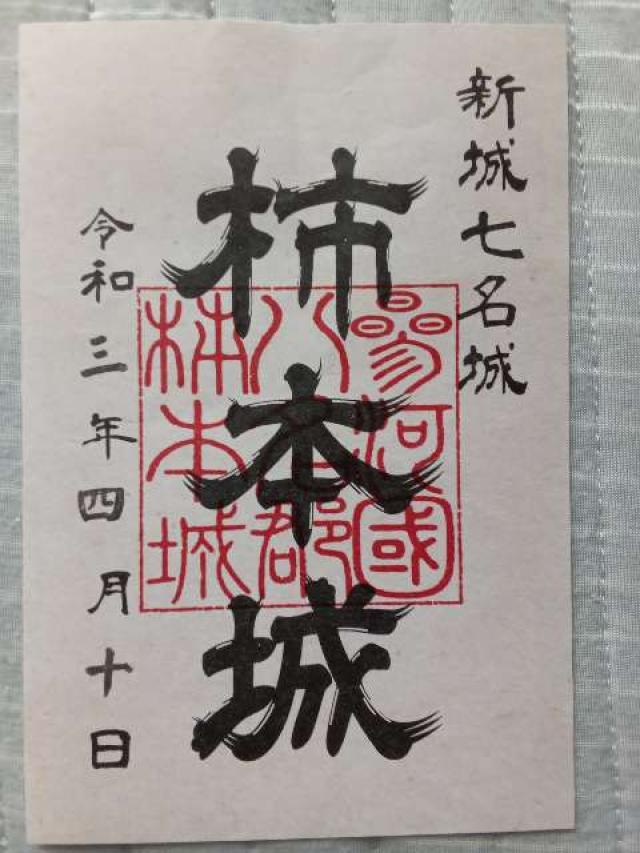 新城七名城
柿本城
參河國
八名郡
柿本城
令和三年四月十日